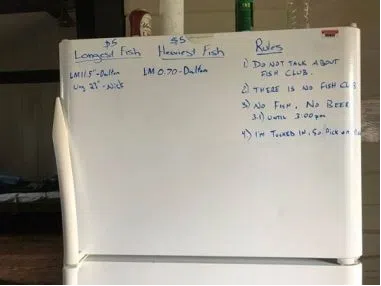 $5
Longest Fish
LM 11.5" - Dalton
21" - Nick
$5
Heaviest Fish
LM 0.70 - Dalton
Rules
1) Do not talk about
Fish Club.
2) There is no Fish Club
3) No Fish, No Beer
3.1) Until 3:00pm
4) I'm Tucked in, So Pick on